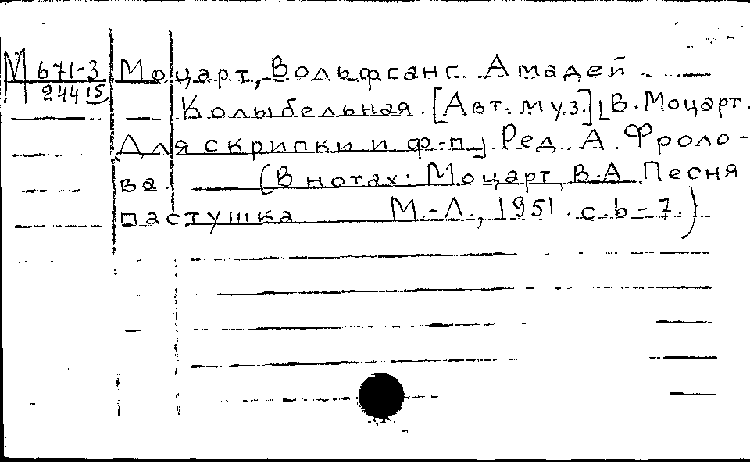 М 671-3 Моцарт, Вольфганг Амадей
24415 Колыбельная. [Авт. муз.] В. Моцарт.
Для скрипки и ф-п. Ред. А. Фроло-
ва. (В нотах: Моцарт, В.А. Песня
пастушка М.-Л., 1951. с. 6-7.)